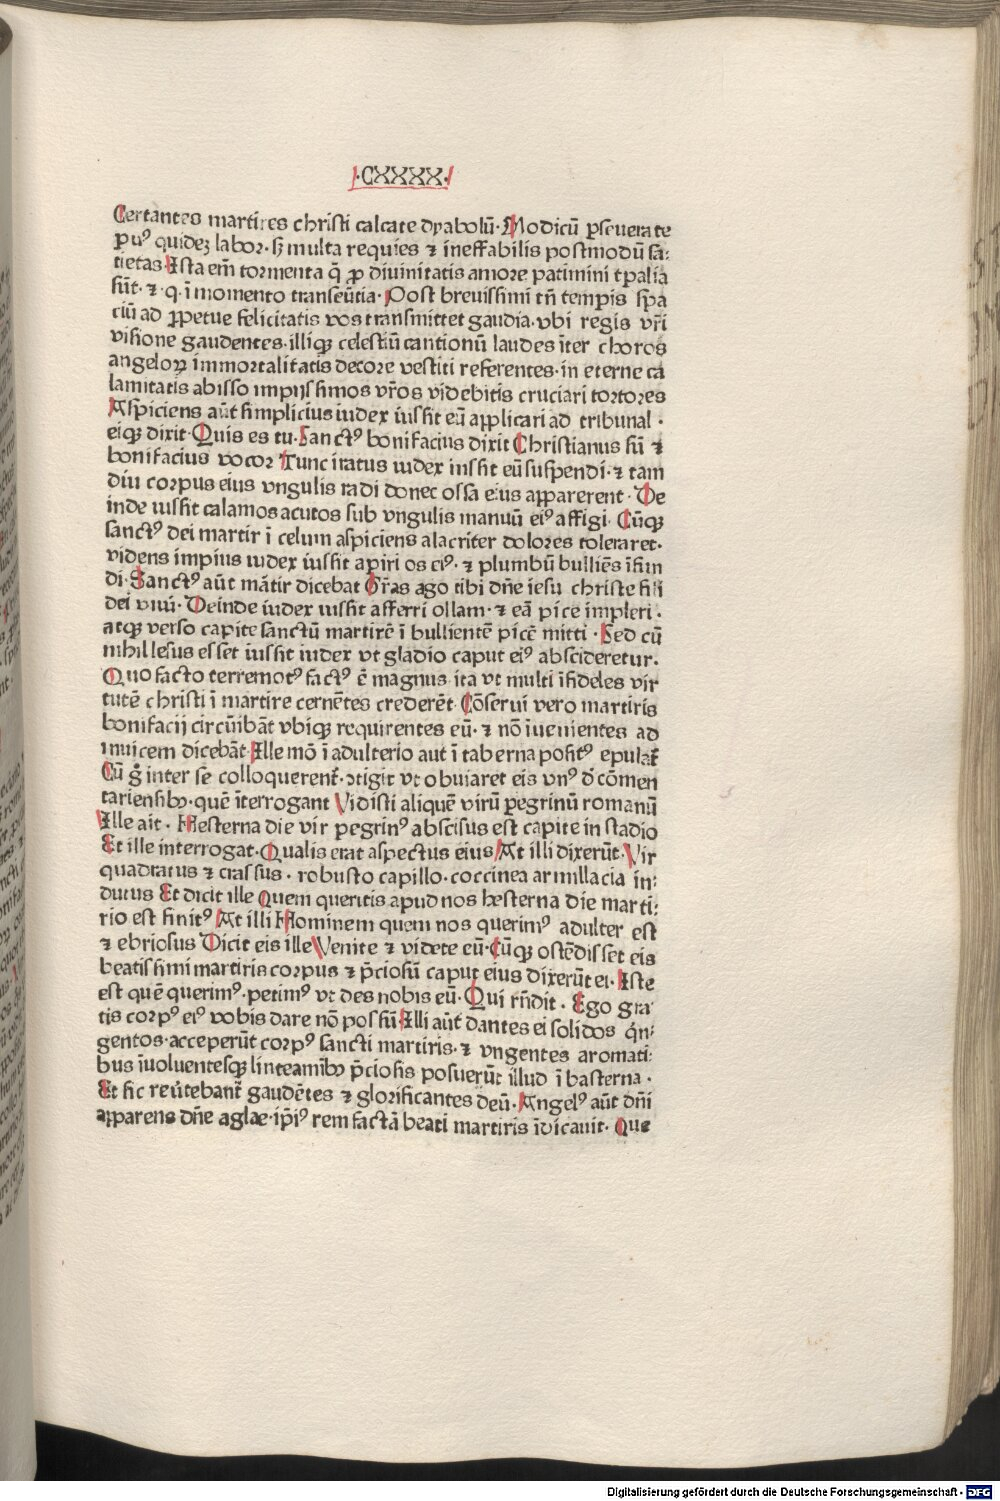 ·CXXXX·
Certantes martires christi calcate dyabolū· Modicū ꝑseuerate
ꝑuꝰ quideꝫ labor· sꝫ multa requies ⁊ ineffabilis postmodū sa⸗
tietas· Ista em̄ tormenta q̄ ꝓ diuinitatis amore patimini tꝑalia
sūt· ⁊ ·q· ī momento transeūtia· Post breuissimi tn̄ tempis spa
ciū ad ꝑpetue felicitatis vos transmittet gaudia· vbi regis vr̄i
visione gaudentes· illiqꝫ celestiū cantionū laudes īter choros
angeloꝝ immortalitatis decore vestiti referentes· in eterne ca
lamitatis abisso impijssimos vr̄os videbitis cruciari tortores
Aspiciens aūt simplicius iudex iussit eū applicari ad tribunal ·
eiqꝫ dixit· Quis es tu· Sanctꝰ bonifacius dixit Christianus sū ⁊
bonifacius vocor Tunc iratus iudex iussit eū suspendi· ⁊ tam
diu corpus eius vngulis radi donec ossa eius apparerent · De
inde iussit calamos acutos sub vngulis manuū eiꝰ affigi· Cūqꝫ
sanctꝰ dei martir ī celum aspiciens alacriter dolores toleraret·
videns impius iudex iussit apiri os eiꝰ· ⁊ plumbū bulliēs īfun
di· Sanctꝰ aūt mātir dicebat Gr̄as ago tibi dn̄e iesu christe fili
dei viui· Deinde iudex iussit afferri ollam· ⁊ eā pice impleri ·
atqꝫ verso capite sanctū martirē ī bullientē picē mitti · Sed cū
nihil lesus esset iussit iudex vt gladio caput eiꝰ abscideretur·
Quo facto terremotꝰ factꝰ ē magnus· ita vt multi īfideles vir
tutē christi ī martire cernētes crederēt· Cōserui vero martiris
bonifacij circūibāt vbiqꝫ requirentes eū· ⁊ nō īuenientes ad
inuicem dicebāt· Ille mō ī adulterio aut ī taberna positꝰ epulat̄
Cū g̊ inter se colloquerent̄· ꝯtigit vt obuiaret eis vnꝰ d̄ cōmen
tariensibꝫ· quē īterrogant Vidisti aliquē virū peregrinū romanū
Ille ait · Hesterna die vir peregrinꝰ abscisus est capite in stadio
Et ille interrogat· Qualis erat aspectus eius At illi dixerūt· Vir
quadratus ⁊ crassus · robusto capillo· coccinea armillacia in⸗
dutus Et dicit ille Quem queritis apud nos hesterna die marti⸗
rio est finitꝰ At illi Hominem quem nos querimꝰ adulter est
⁊ ebriosus Dicit eis ille Venite ⁊ videte eū· Cūqꝫ ostēdisset eis
beatissimi martiris corpus ⁊ p̄ciosū caput eius dixerūt ei· Iste
est quē querimꝰ· petimꝰ vt des nobis eū· Qui rn̄dit · Ego gra
tis corpꝰ eiꝰ vobis dare nō possū Illi aūt dantes ei solidos q̄n⸗
gentos· acceperūt corpꝰ sancti martiris· ⁊ vngentes aromati⸗
bus īuoluentesqꝫ linteamībꝫ p̄ciosis posuerūt illud ī basterna ·
Et sic reu̓tebant̄ gaudētes ⁊ glorificantes deū· Angelꝰ aūt dn̄i
apparens dn̄e aglae· ip̄iꝰ rem factā beati martiris īdicauit· Que
Digitalisierung gefördert durch die Deutsche Forschungsgemeinschaft · DFG